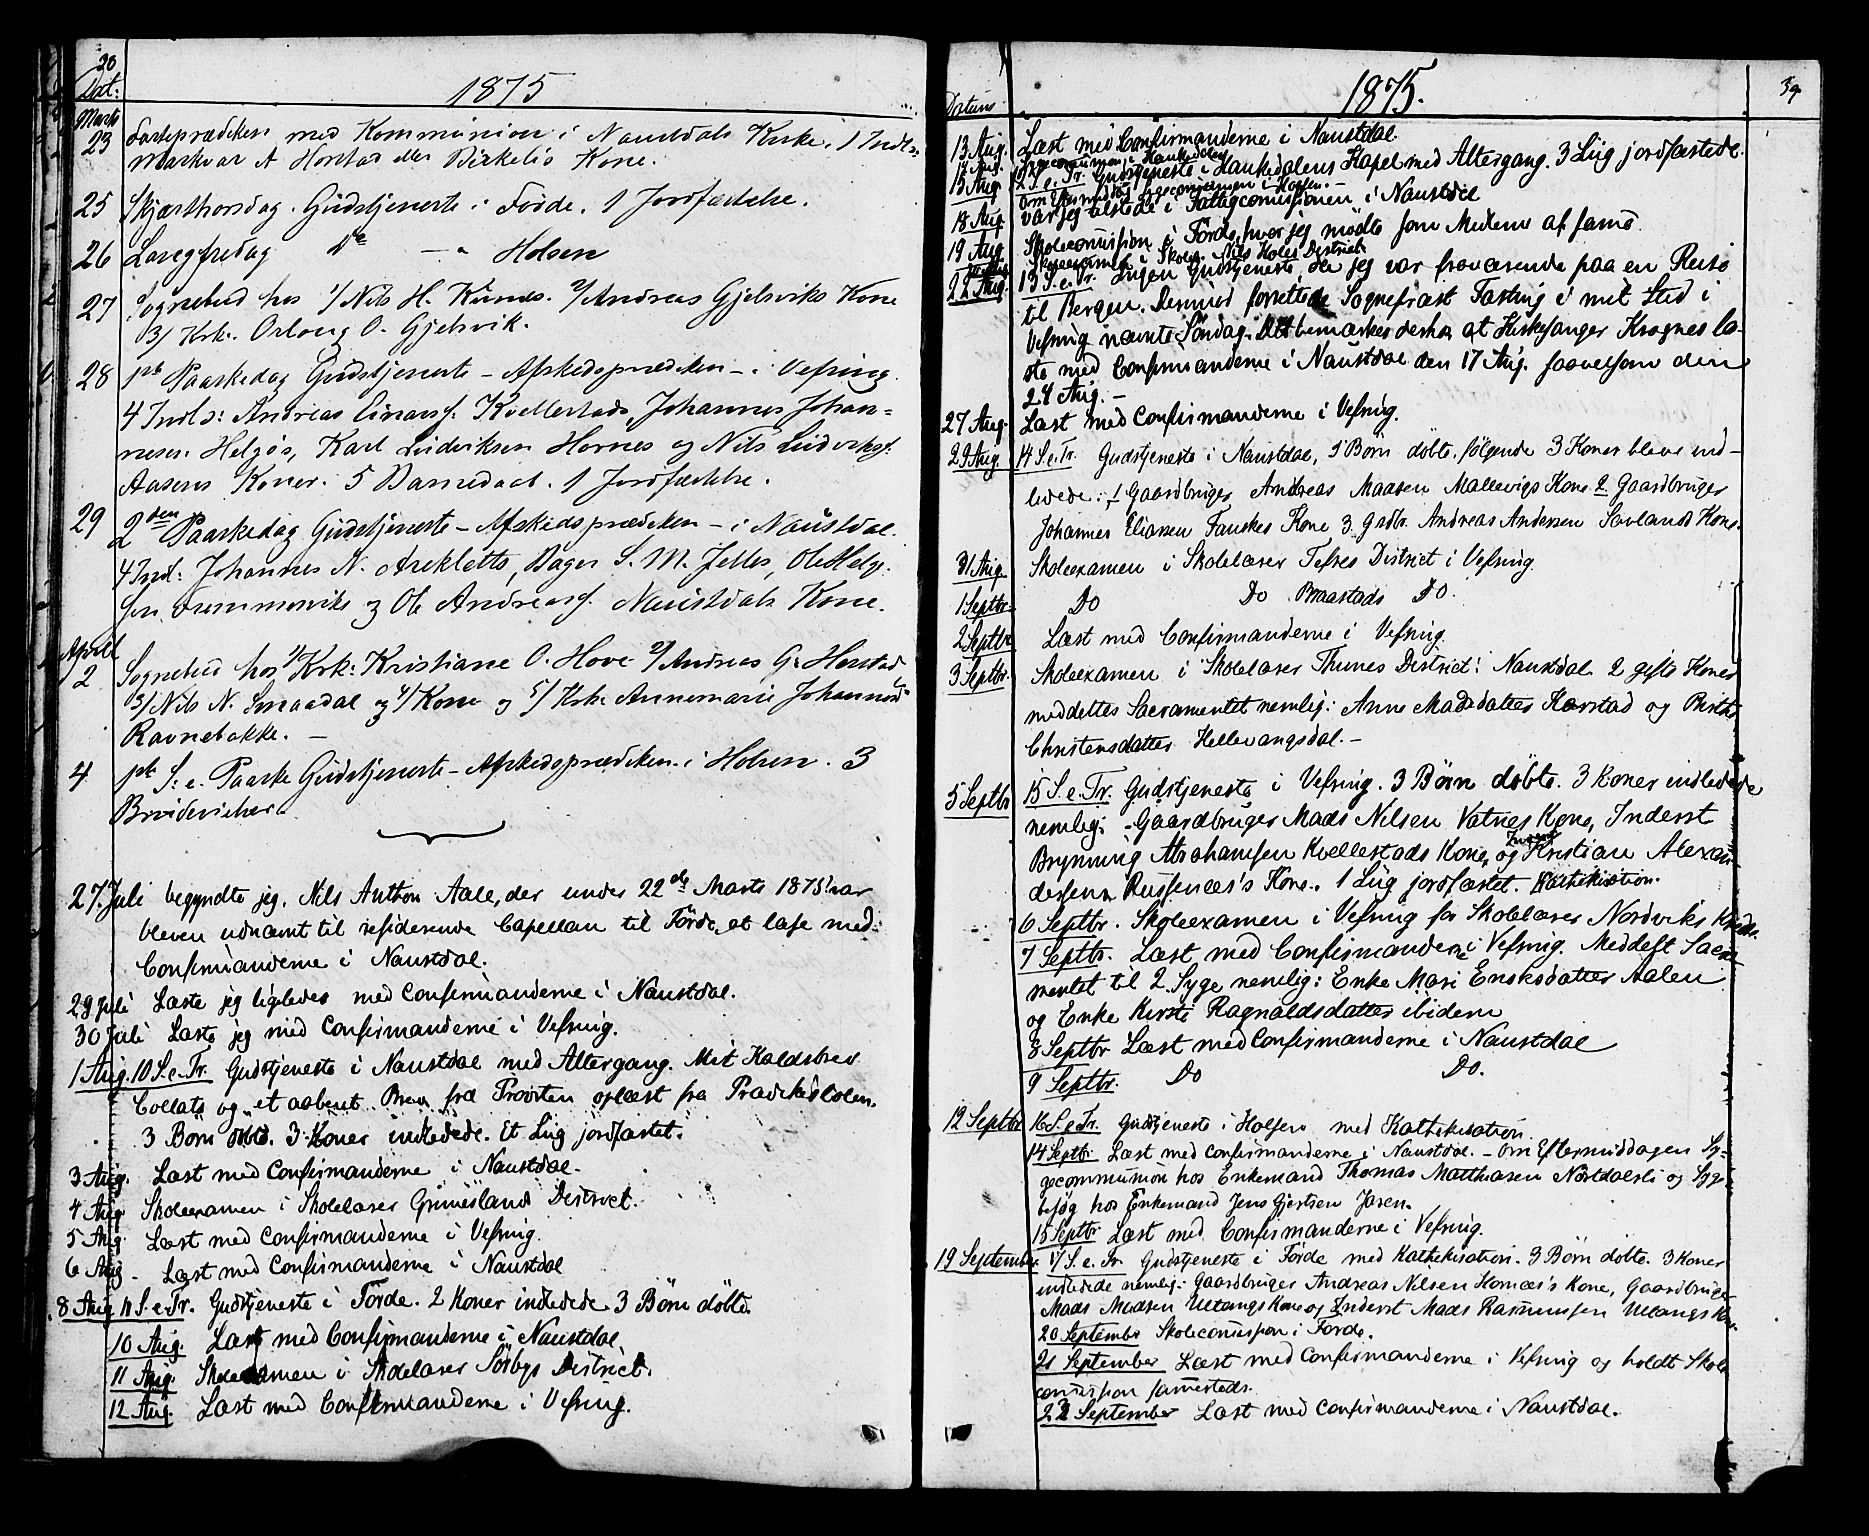 20
Dat:
1875
Marts
23 Fasteprædiken med Kommunion i Naustdals Kirke. 1 Indl:
markvar A Horstad eller Birkelis Kone.
25 Skjærthorsdag. Gudstjeneste i Förde. 1 Jordfæstelse.
26 Langfredag Do — " Holsen
27 Sognebud hos 1/ Nils H. Kunds. 2/ Andreas Gjelsviks Kone
3/ Krk. O. Gjelsvik.
28 1ste Paaskedag Gudstjeneste – Afskedsprædiken – i Vefring
4 Indl: Andreas Einarss. Kvellestads, Johannes Johan=
nesen Helgös, Karl Ludviksen Hornes og Nils Ludviks.
Aasens Koner. 5 Barnedaab. 1 Jordfæstelse.
29 2den Paaskedag Gudstjeneste – Afskedsprædiken – i Naustdal.
4 Indl: Johannes N. Arekletts, Bager S. M. Felles, Ole Helg.
sen og Ole Andreass. Naustdals Kone.
April
2 Sognebud hos 1/ Krk. Kristiane O. Hove 2/ Andreas G: Horstad
3/ Nils N. Smaadal og 4/ Kone og 5/ Krk. Annemarie Johannesd=
Ravnebakke. —
4 1ste S. e. Paaske Gudstjeneste – Afskedsprædiken i Holsen. 3
Brudevielser.
27. Juli begyndte jeg, Nils Anthon Aale, der under 22de Marts 1875 var
bleven udnævnt til residerende Capellan til Förde, at læse med
Confirmanderne i Naustdal.
29 Juli Læste jeg ligeledes med Confirmanderne i Naustdal.
30 Juli Læste jeg med Confirmanderne i Vefring.
1 Aug. 10 S. e. Tr. Gudstjeneste i Naustdal med Altergang. Mit Kaldsbrev
Collats og et aabent Brev fra Provsten oplæst fra Prædikestolen.
3 Börn döbte. 3 Koner indledede. Et Liig jordfæstet.
3 Aug. Læst med Confirmanderne i Naustdal.
4 Aug Skoleexamen i Skolelærer Grimeslands District.
5 Aug Læst med Confirmanderne i Vefring.
6 Aug. Læst med Confirmanderne i Naustdal
8 Aug 11 S. e. Tr. Gudstjeneste i Förde. 2 Koner indledede 3 Börn döbte.
10 Aug. Læst med Confirmanderne i Naustdal.
11 Aug. Skoleexamen i Skolelærer Sörbys District.
12 Aug. Læst med Confirmanderne i Vefring.
39
Datum
1875.
13 Aug. Læst med Confirmanderne i Naustdal.
Sygecommunion i Haukedalen
15 Aug. 12 S. e. Tr. Gudstjeneste i Haukedalens Kapel med Altergang. 3 Liig jordfæstede.
Om Eftermiddag Sygecommunion i Holsen. –
18 Aug. var jeg tilstede i Fattigcommissionen i Naustdal
19 Aug Skolecommission i Förde, hvor jeg mödte som Medlem af samme.
Skoleexamen i Skolel. Nils Holes District.
22 Aug. 13 S. e. Tr. Ingen Gudstjeneste, da jeg var fraværende paa en Reise
til Bergen. Derimod forrettede Sognepræst Fasting i mit Sted i
Vefring nævnte Söndag. Det bemærkes derhos at Kirkesanger Krognes læ-
ste med Confirmanderne i Naustdal den 17 Aug. saavelsom den
24 Aug. –
27 Aug. Læst med Confirmanderne i Vefring.
29 Aug 14 S. e. Tr. Gudstjeneste i Naustdal, 5 Börn döbte. fölgende 3 Koner bleve ind-
ledede: 1 Gaardbruger Andreas Maasen Mallevigs Kone 2 Gaardbruger
Johannes Eliassen Fauskes Kone 3. Grdbr. Andreas Andersen Savlands Kone.
31 Aug Skoleexamen i Skolelærer Tefres District i Vefring.
1 Septbr. Do Do Braastads Do.
2 Septbr Læst med Confirmanderne i Vefring.
3 Septbr. Skoleexamen i Skolelærer Thunes District i Naustdal. 2 gifte Koner
meddeltes Sacramentet nemlig: Anne Madsdatter Karstad og Birthe
Christensdatter Hellevangsdal. –
5 Septbr 15 S. e. Tr. Gudstjeneste i Vefring. 3 Börn döbte. 3 Koner indledede
nemlig: Gaardbruger Mads Nilsen Vatnes Kone, Inderst
Brynning Abrahamsen Kvellestads Kone, og Inderst Kristian Alexan
dersens Russenæs's Kone. 1 Liig jordfæstet. Kathekisation.
6 Septbr. Skoleexamen i Vefring for Skolelærer Nordviks Kreds.
7 Septbr. Læst med Confirmanderne i Vefring. Meddelt Sacra
mentet til 2 Syge nemlig: Enke Mari Eriksdatter Aalen
og Enke Kirsti Ragnaldsdatter ibidem
8 Septbr Læst med Confirmanderne i Naustdal
9 Septbr. Do Do.
12 Septbr 16 S. e. Tr. Gudstjeneste i Holsen med Kathekisation.
14 Septbr. Læst med Confirmanderne i Naustdal. – Om Eftermiddagen Sy=
gecommunion hos Enkemand Thomas Matthiasen Naustdalsli og Syge
besög hos Enkemand Jens Gjertsen Jasen.
15 Septbr Læst med Confirmanderne i Vefring.
19 September 17 S. e. Tr Gudstjeneste i Förde med Kathekisation. 3 Börn döbte. 3 Koner
indledede nemlig: Gaardbruger Andreas Nilsen Hornæs's Kone, Gaardbruger
Mads Madsen Ullangs Kone og Inderst Mads Rasmussen Ullangs Kone.
20 September Skolecommission i Förde.
21 September Læst med Confirmanderne i Vefring og holdt Skole
commission sammesteds.
22 September Læst med Confirmanderne i Naustdal.